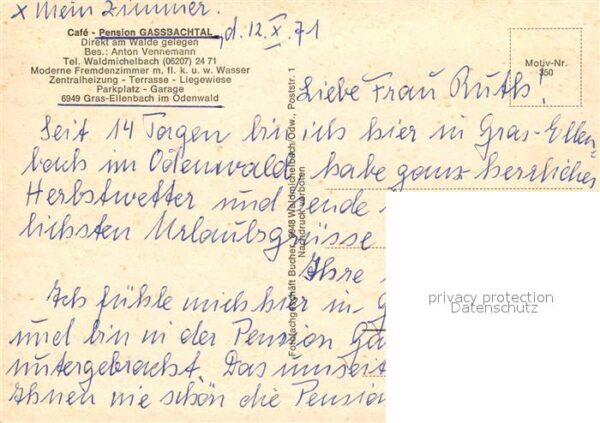 x Mein Zimmer.
, d. 12. X. 71
Café - Pension GASSBACHTAL
Direkt am Walde gelegen
Bes.: Anton Vennemann
Tel. Waldmichelbach (06207) 24 71
Moderne Fremdenzimmer m. fl. k. u. w. Wasser
Zentralheizung - Terrasse - Liegewiese
Parkplatz - Garage
6949 Gras-Ellenbach im Odenwald
Motiv-Nr.
350
Liebe Frau Ruths!
Seit 14 Tagen bin ich hier in Gras-Ellen-
bach im Odenwald, habe ganz herrliches
Herbstwetter und sende
lichsten Urlaubsgrüsse
Ihre
Ich fühle mich hier in G
und bin in der Pension Ga
untergebracht. Das umseit
Ihnen wie schön die Pension
Fotofachgeschäft Bucher, 6948 Waldmichelbach/Odw., Poststr. 1
Nachdruck verboten
privacy protection
Datenschutz